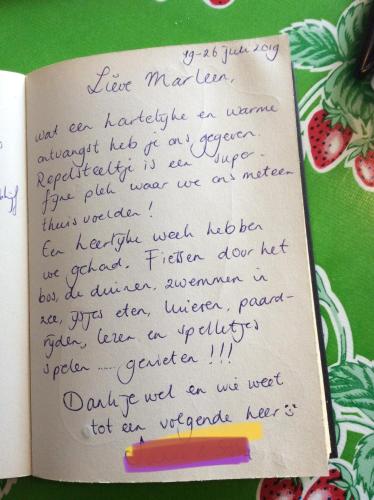 19-26 juli 2019
Lieve Marleen,
wat een hartelijke en warme
ontvangst heb je ons gegeven.
Repelsteeltje is een super-
fijne plek waar we ons meteen
thuis voelden!
Een heerlijke week hebben
we gehad. Fietsen door het
bos, de duinen, zwemmen in
zee, ijsjes eten, luieren, paard-
rijden, lezen en spelletjes
spelen ..... genieten !!!
Dankje wel en wie weet
tot een volgende keer